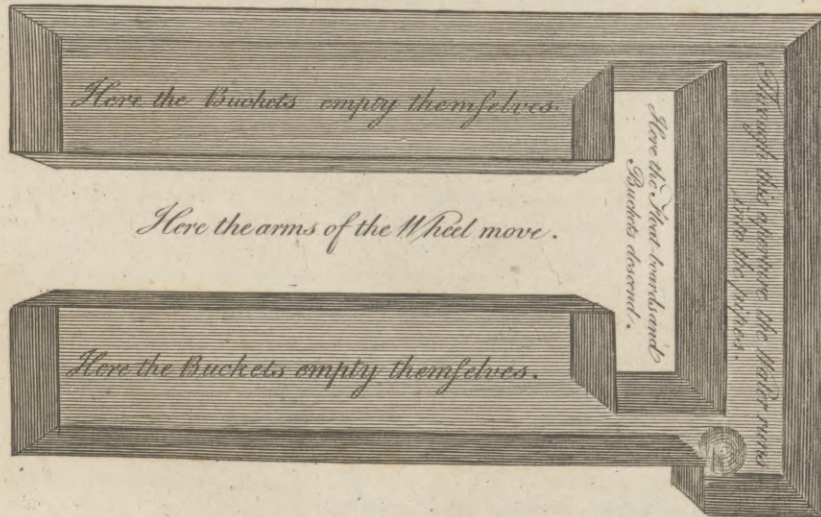 Here the Buckets empty themſelves.
Here the arms of the Wheel move.
Here the Buckets empty themſelves.
Here the Float-boards and
Buckets descend.
Through this aperture the Water runs
into the pipes.